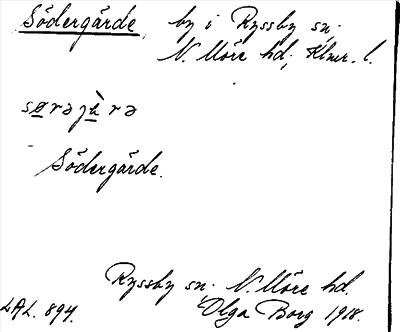 Södergärde, by i Ryssby sn.
N. Möre hd; Klmr. l.
Södergärde.
Ryssby sn. N. Möre hd.
LAL. 894. Olga Borg 1918.